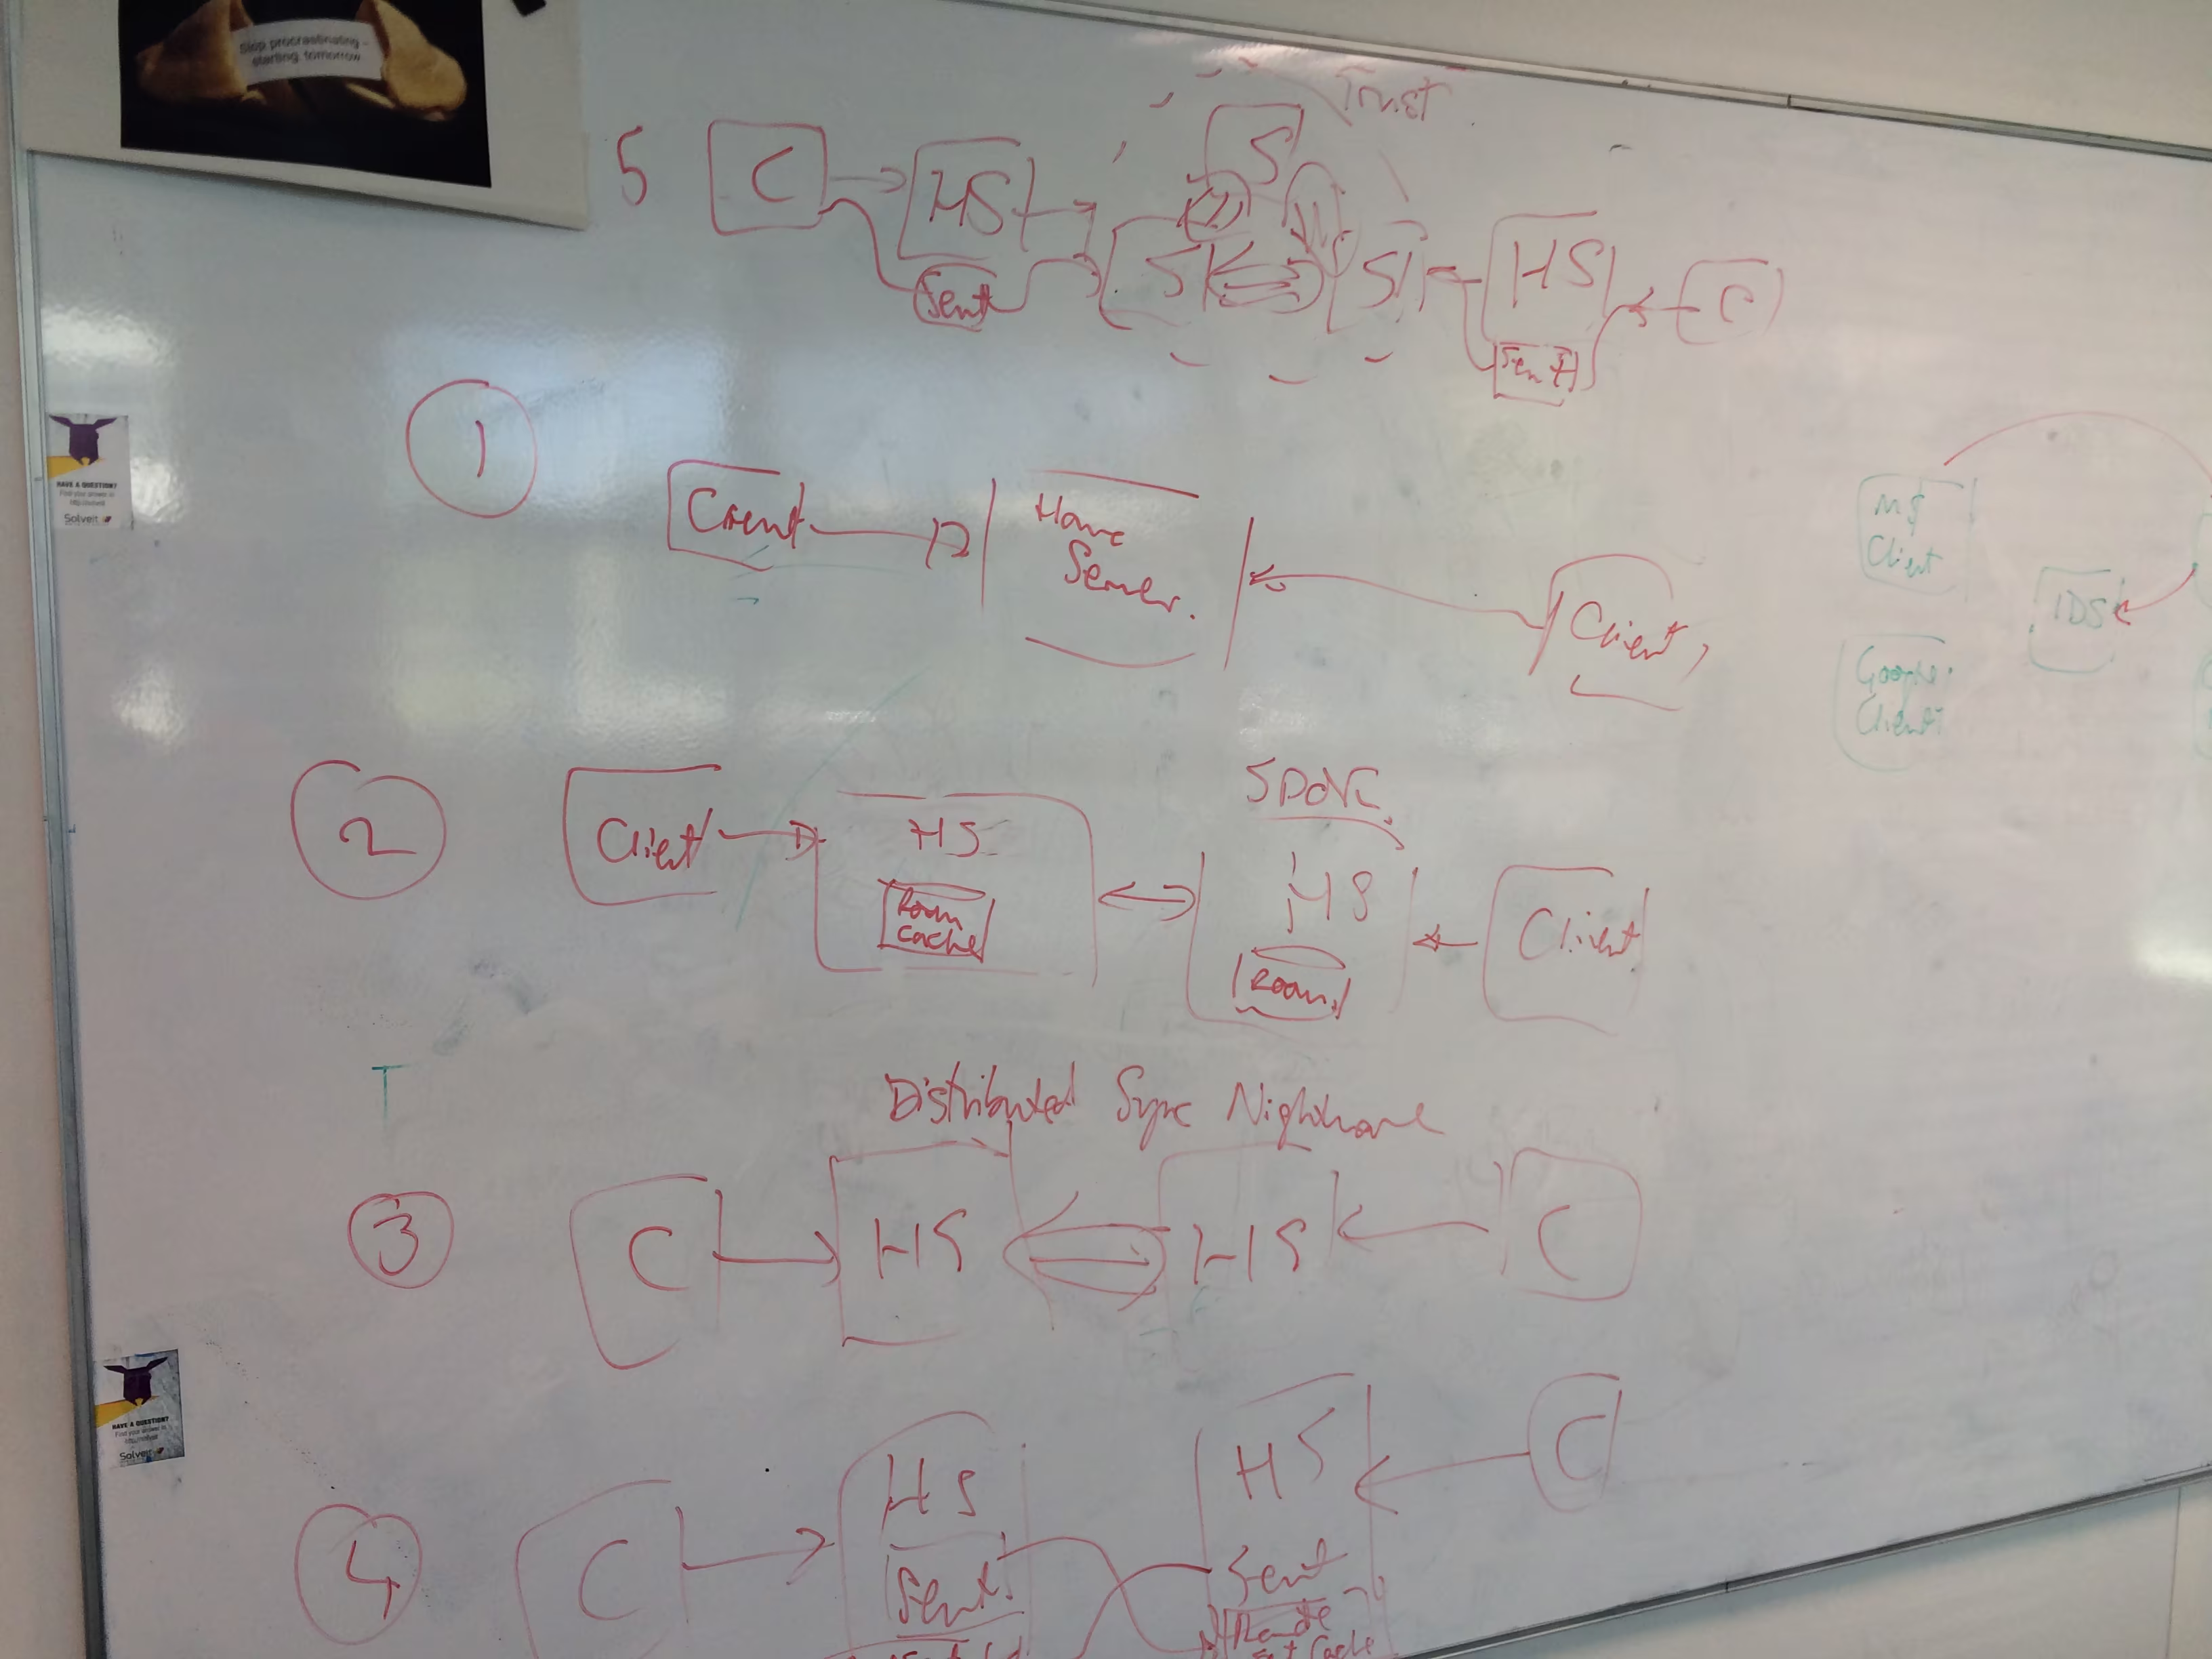 Stop procrastinating -
starting tomorrow
Trust
5
C
HS
S
S
S
HS
C
Sent
Sent
1
Client
Home
Server.
Client
MS
Client
IDS
Google
Client
HAVE A QUESTION?
Find your answer in
Solveit
2
Client
HS
Room
Cache
HS
Room
Client
T
Distributed Sync Nightmare
3
C
HS
HS
C
HAVE A QUESTION?
Find your answer in
Solveit
4
C
HS
Sent
HS
Sent
Remote
Sent Cache
C